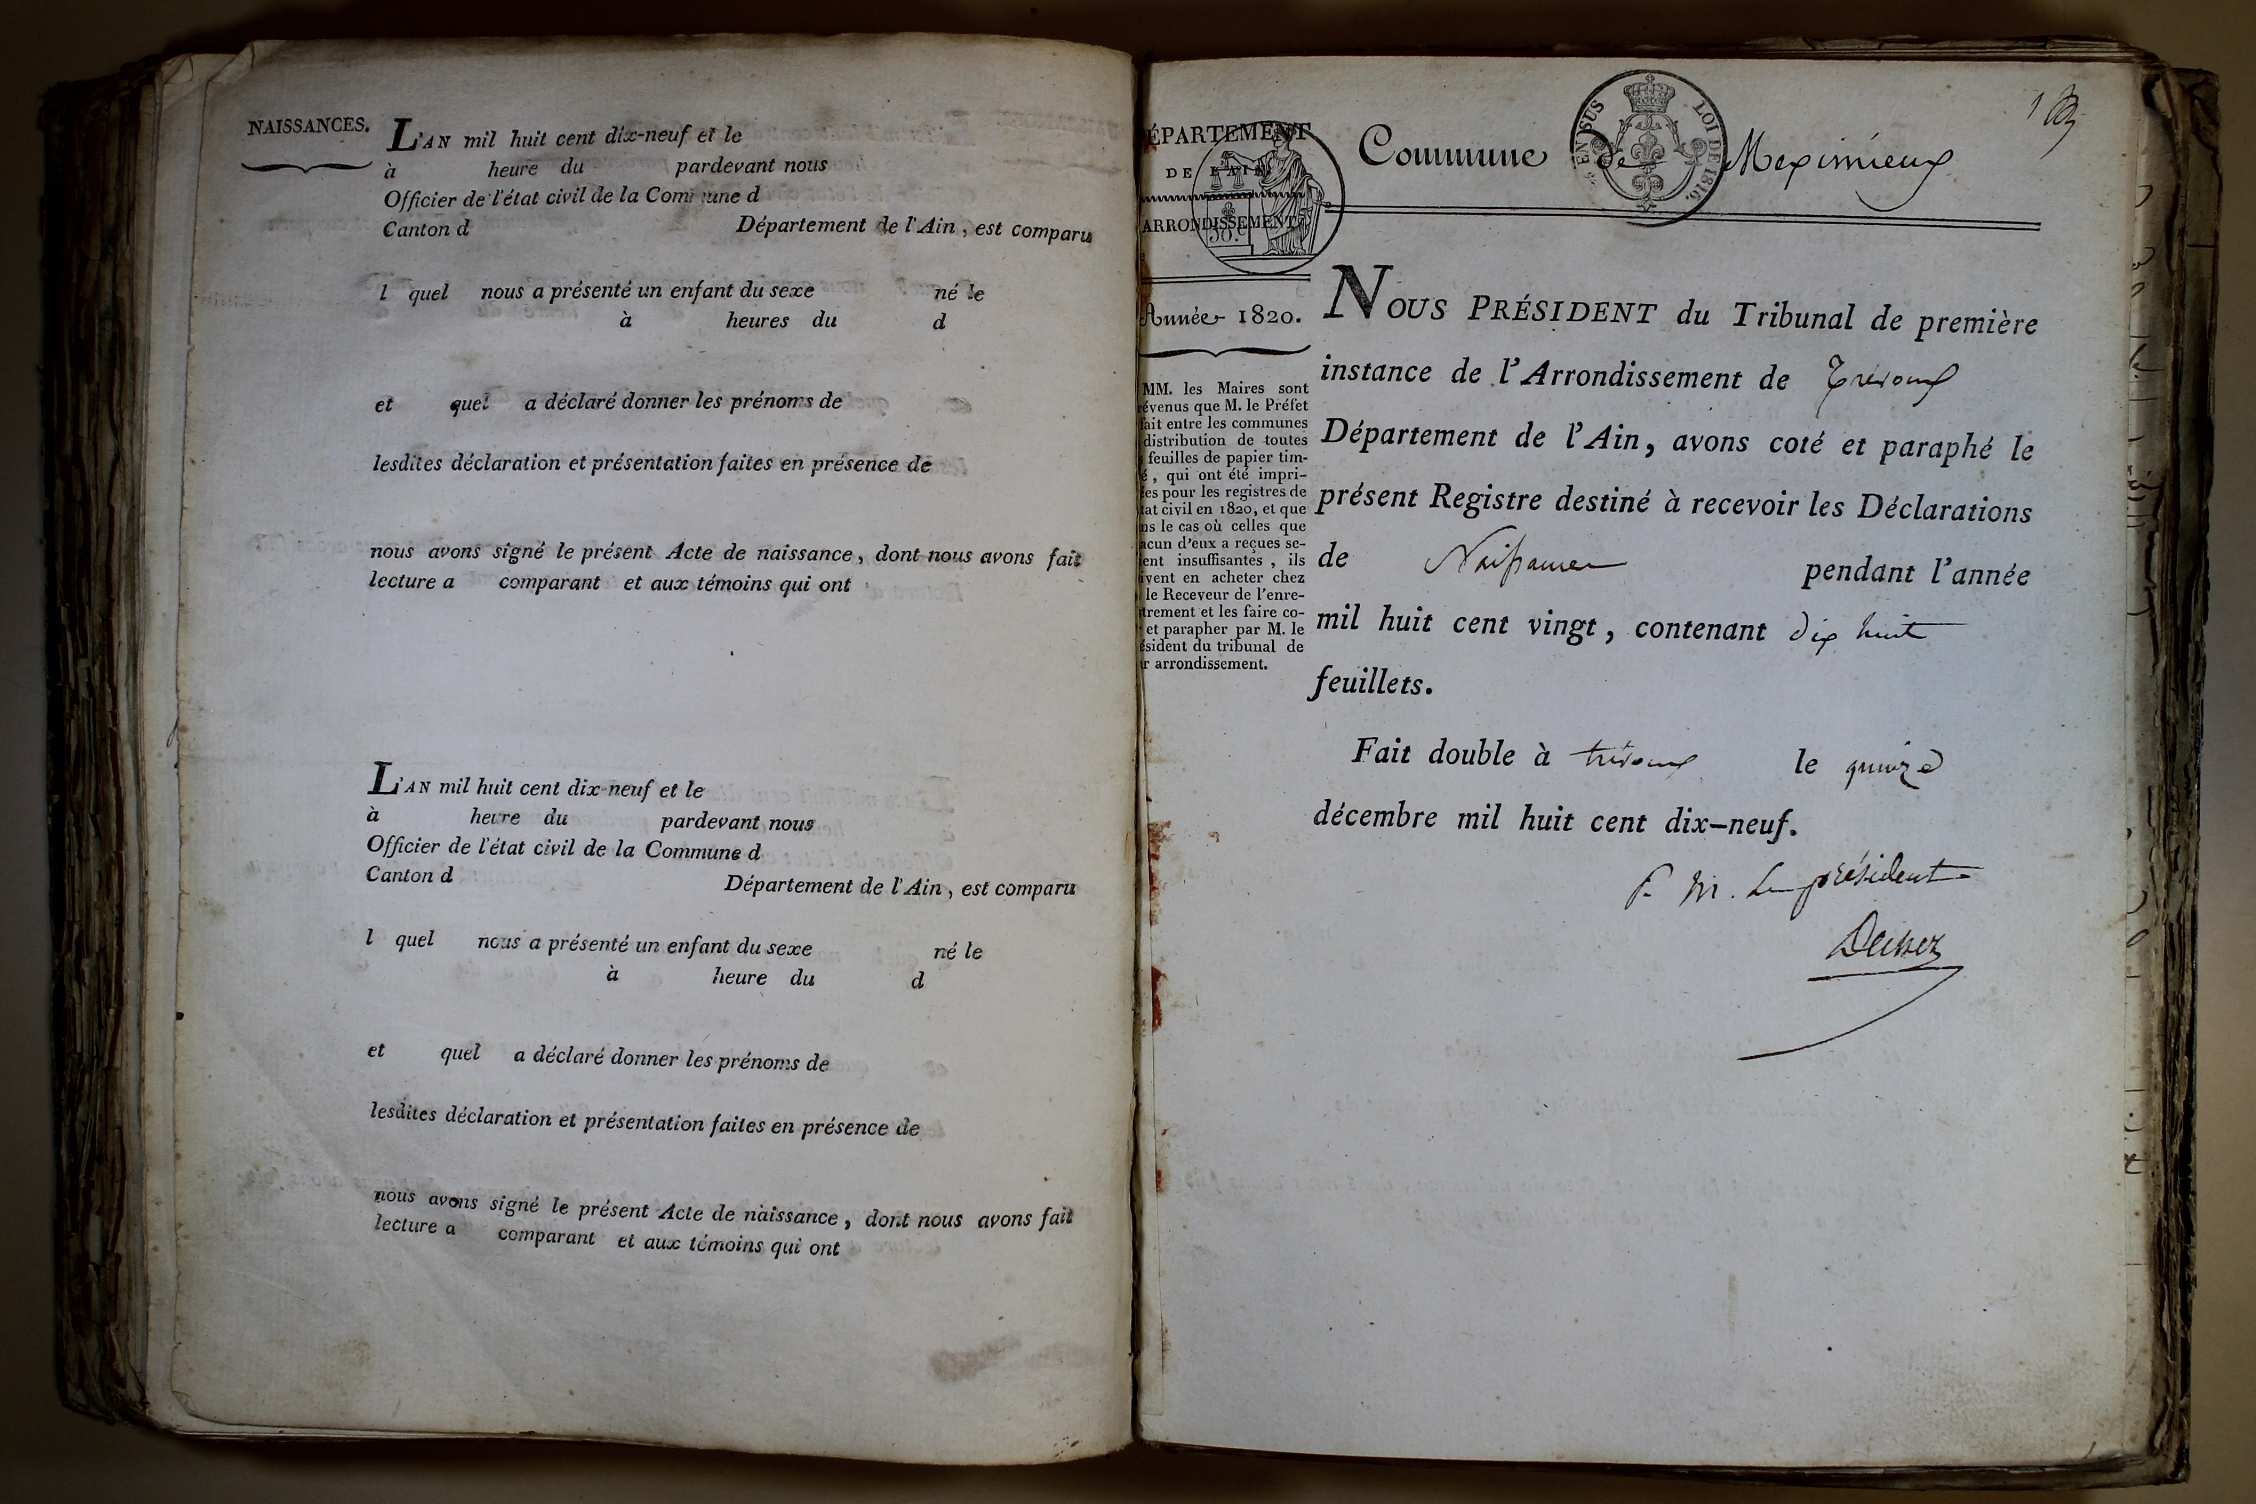 NAISSANCES.
L'AN mil huit cent dix-neuf et le
à heure du pardevant nous
Officier de l'état civil de la Commune d
Canton d Département de l'Ain, est comparu
l quel nous a présenté un enfant du sexe né le
à heures du d
et quel a déclaré donner les prénoms de
lesdites déclaration et présentation faites en présence de
nous avons signé le présent Acte de naissance, dont nous avons fait
lecture a comparant et aux témoins qui ont
L'AN mil huit cent dix-neuf et le
à heure du pardevant nous
Officier de l'état civil de la Commune d
Canton d Département de l'Ain, est comparu
l quel nous a présenté un enfant du sexe né le
à heure du d
et quel a déclaré donner les prénoms de
lesdites déclaration et présentation faites en présence de
nous avons signé le présent Acte de naissance, dont nous avons fait
lecture a comparant et aux témoins qui ont
ÉPARTEMENT
DE L'AIN.
ARRONDISSEMENT
50.c
Année 1820.
MM. les Maires sont
évenus que M. le Préfet
fait entre les communes
distribution de toutes
feuilles de papier tim-
é, qui ont été impri-
es pour les registres de
tat civil en 1820, et que
ns le cas où celles que
acun d'eux a reçues se-
ent insuffisantes, ils
ivent en acheter chez
le Receveur de l'enre-
trement et les faire co-
et parapher par M. le
ésident du tribunal de
r arrondissement.
Commune de Meximieux
EN SUS LOI DE 1816.
1
NOUS PRÉSIDENT du Tribunal de première
instance de l'Arrondissement de Trévoux
Département de l'Ain, avons coté et paraphé le
présent Registre destiné à recevoir les Déclarations
de Naissances pendant l'année
mil huit cent vingt, contenant dix huit
feuillets.
Fait double à trévoux le quinze
décembre mil huit cent dix-neuf.
P. M. Le président